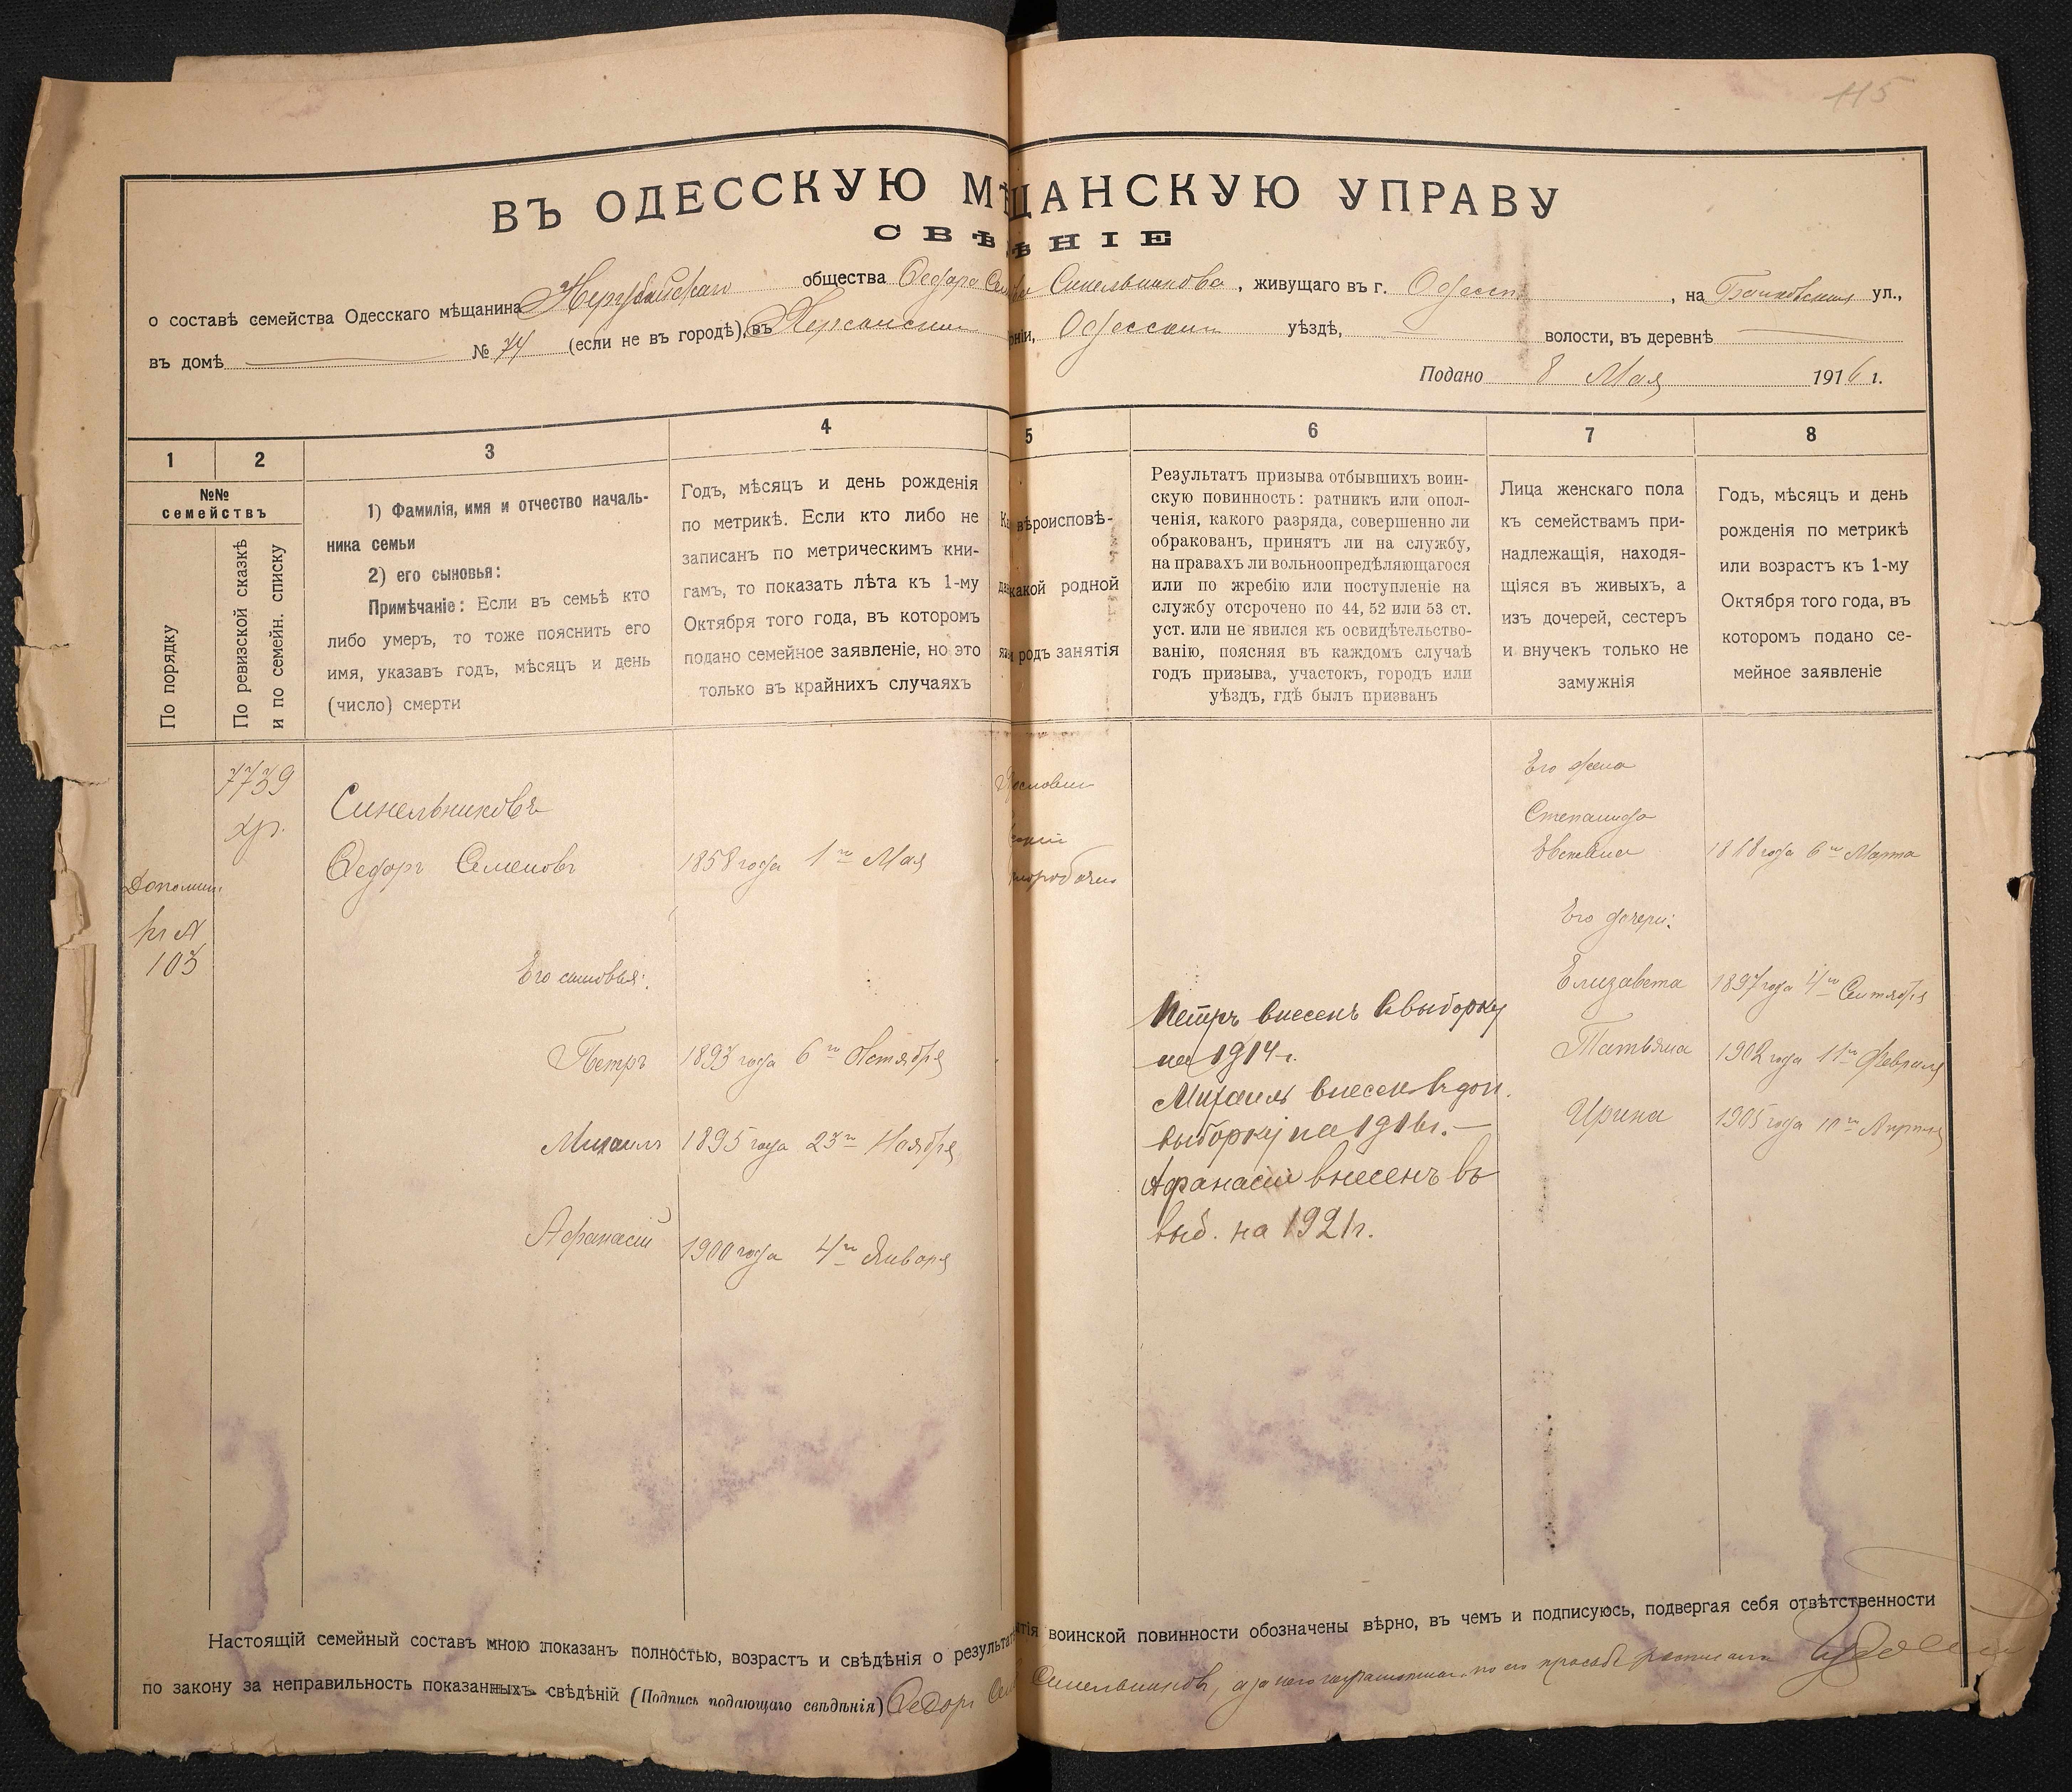 115
ВЪ ОДЕССКУЮ МѢЩАНСКУЮ УПРАВУ
СВѢ ѢНІЕ
о составѣ семейства Одесскаго мѣщанина общества Ѳедора Синельникова, живущаго въ г. Одессѣ, на ул.,
въ домѣ № 74 (если не въ городѣ), въ Херсонской ніи, Одесскомъ уѣздѣ, волости, въ деревнѣ
Подано 8 Мая 1916 г.
1
2
3
4
5
6
7
8
№№
семействъ
По порядку
По ревизской сказкѣ
и по семейн. списку
1) Фамилія, имя и отчество началь-
ника семьи
2) его сыновья:
Примѣчаніе: Если въ семьѣ кто
либо умеръ, то тоже пояснить его
имя, указавъ годъ, мѣсяцъ и день
(число) смерти
Годъ, мѣсяцъ и день рожденія
по метрикѣ. Если кто либо не
записанъ по метрическимъ кни-
гамъ, то показать лѣта къ 1-му
Октября того года, въ которомъ
подано семейное заявленіе, но это
только въ крайнихъ случаяхъ
вѣроисповѣ-
какой родной
родъ занятія
Результатъ призыва отбывшихъ воин-
скую повинность: ратникъ или опол-
ченія, какого разряда, совершенно ли
обракованъ, принятъ ли на службу,
на правахъ ли вольноопредѣляющагося
или по жребію или поступленіе на
службу отсрочено по 44, 52 или 53 ст.
уст. или не явился къ освидѣтельство-
ванію, поясняя въ каждомъ случаѣ
годъ призыва, участокъ, городъ или
уѣздъ, гдѣ былъ призванъ
Лица женскаго пола
къ семействамъ при-
надлежащія, находя-
щіяся въ живыхъ, а
изъ дочерей, сестеръ
и внучекъ только не
замужнія
Годъ, мѣсяцъ и день
рожденія по метрикѣ
или возрастъ къ 1-му
Октября того года, въ
которомъ подано се-
мейное заявленіе
7739
хр.
№
103
Синельниковъ
Ѳедоръ Семеновъ 1858 года 1го Мая
Его сыновья:
Петръ 1893 года 6го Октября
Михаилъ 1895 года 23го Ноября
Афанасій 1900 года 4го Января
Петръ внесенъ в выборку
на 1914 г.
Михаилъ внесенъ въ доп.
выборку на 1916 г. —
Афанасій внесенъ въ
выб. на 1921 г.
Его жена
Степанида
6го Марта
Его дочери:
Елизавета 1897 года 4го Сентября
Татьяна 1902 года 11го Февраля
Ирина 1905 года Апреля
Настоящій семейный составъ мною показанъ полностью, возрастъ и свѣдѣнія о результат тія воинской повинности обозначены вѣрно, въ чемъ и подписуюсь, подвергая себя отвѣтственности
по закону за неправильность показанныхъ свѣдѣній (Подпись подающаго свѣдѣнія) Ѳедоръ Синельниковъ, а за него неграмотнаго по его просьбѣ